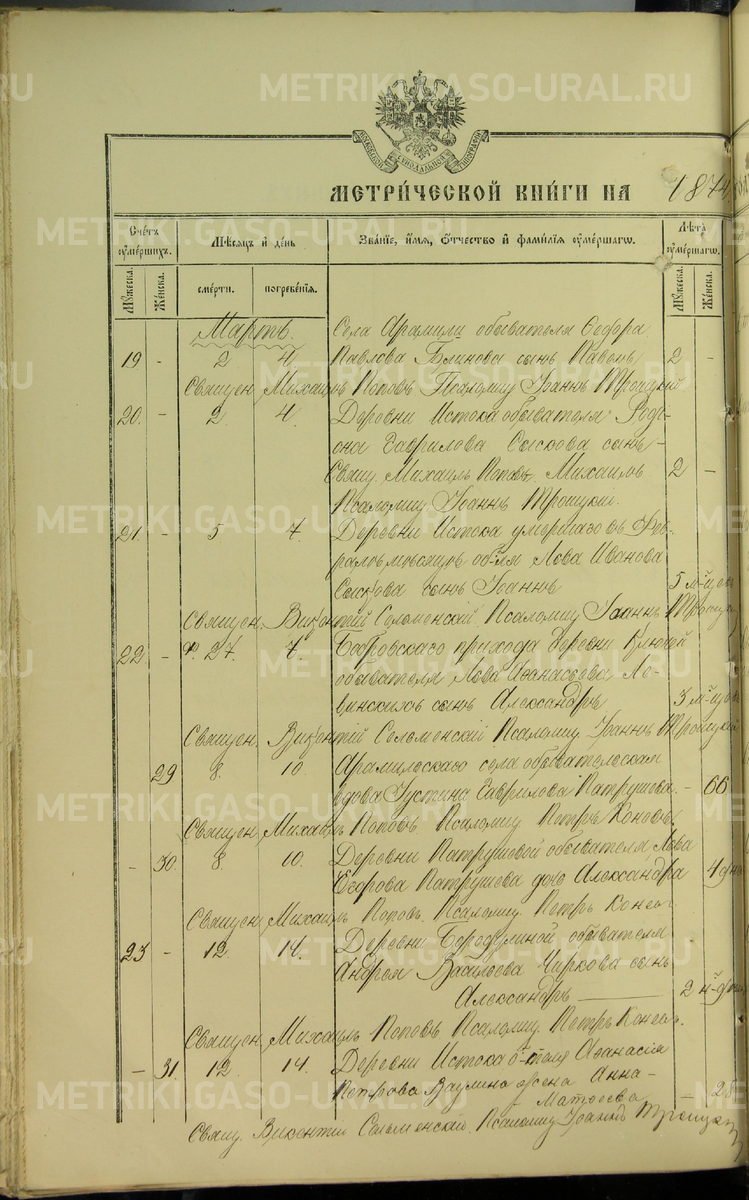 METRIKI.GASO-URAL.RU
МЕТРИ́ЧЕСКОЙ КНИ́ГИ НА 1874
Сче́тъ ᲂу҆ме́ршихъ.
Мѣ́сяцъ и҆ де́нь
Зва́нїе, и҆́мя, ѻ҆́тчество и҆ фами́лїя ᲂу҆ме́ршагѡ.
Лѣта̀ ᲂу҆ме́ршагѡ.
Мꙋ́жеска.
Же́нска.
сме́рти.
погребе́нїя.
Мꙋ́жеска.
Же́нска.
Мартъ. Села Арамили обывателя Ѳедора
19 - 2 4 Павлова Блинова сынъ Павелъ 2 -
Священ. Михаилъ Поповъ Псаломщ Іоаннъ Троицкий
20. - 2 4. Деревни Истока обывателя Родi-
она Гаврилова Сыскова сынъ -
Свящ. Михаилъ Поповъ. Михаилъ 2 -
Псаломщ Іоаннъ Троицкий.
21 - 5 7. Деревни Истока умершаго въ Фев-
ралѣ мѣсяцѣ об-ля Льва Иванова
Сыскова сынъ Іоаннъ 5 м-цев
Священ. Викентий Селеменский. Псаломщ Іоаннъ Троицк
22 - Ф. 27. 7. Бобровскаго прихода деревни Ключей
обывателя Льва Аѳанасьева Ло-
винскихъ сынъ Александръ 3 м-цев
Священ. Викентій Селеменскій Псаломщ. Іоаннъ Троицкий
29 8. 10. Арамильскаго села обывательская
вдова Іустина Гаврилова Патрушева. - 66
Священ. Михаилъ Поповъ. Псаломщ Петръ Коневъ.
- 30. 8. 10. Деревни Патрушевой обывателя Льва
Егорова Патрушева дочь Александра 4 дня
Священ. Михаилъ Поповъ. Псаломщ. Петръ Конев
23 - 12. 14. Деревни Бородулиной обывателя
Андрея Васильева Чиркова сынъ
Александръ 2 н-д
Священ. Михаилъ Поповъ Псаломщ. Петръ Конев.
- 31 12. 14. Деревни Истока об-теля Аѳанасія
Петрова Ваулина жена Анна -
Матѳеева - 28
Свящ. Викентий Сельменский. Псаломщ Іоаннъ Троицкий